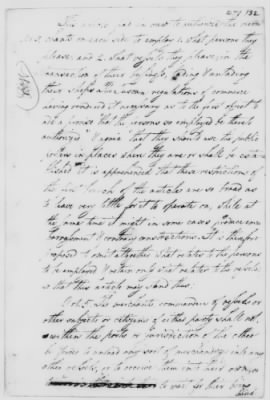 277 132
This article had in view to authorize the merch-
ants on each side to employ 1. what persons they
please, and 2. what vessels they please, in the
transaction of their business, loading & unlading
their ships &c. certain regulations of commerce
having rendered it necessary as to the first object to
ask a license that the persons so employed be thereto
authorised & again that they should use the public
in places where they are or shall be estab-
lished. it is apprehended that these restrictions of
the first branch of the articles are so broad as
to leave very little for it to operate on, while at
the same time it might in some cases produce em-
barrassment & contrary constructions. it is therefore
proposed to omit altogether what relates to the persons
to be employed & retain only what relates to the vessels.
so that this article may stand thus.
Art. 5. The merchants, commanders of vessels or
other subjects or citizens of either party shall not
within the ports or jurisdiction of the other
be forced to unload any sort of merchandize into any
other vessels, or to receive them into their own, or
to wait for their being